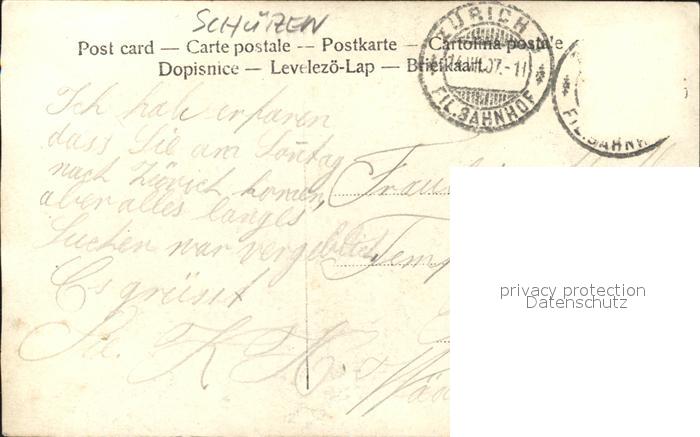 SCHÜZEN
Post card — Carte postale — Postkarte — Cartolina postale
Dopisnice — Levelező-Lap — Briefkaart
ZÜRICH
VII.07.-11
FIL.BAHNHOF
FIL.BAHNH
Ich hab erfaren
dass Sie am Sontag
nach Zürich komen,
aber alles langes
Suchen war vergeblich
Es grüsst
Frau
K H
privacy protection
Datenschutz